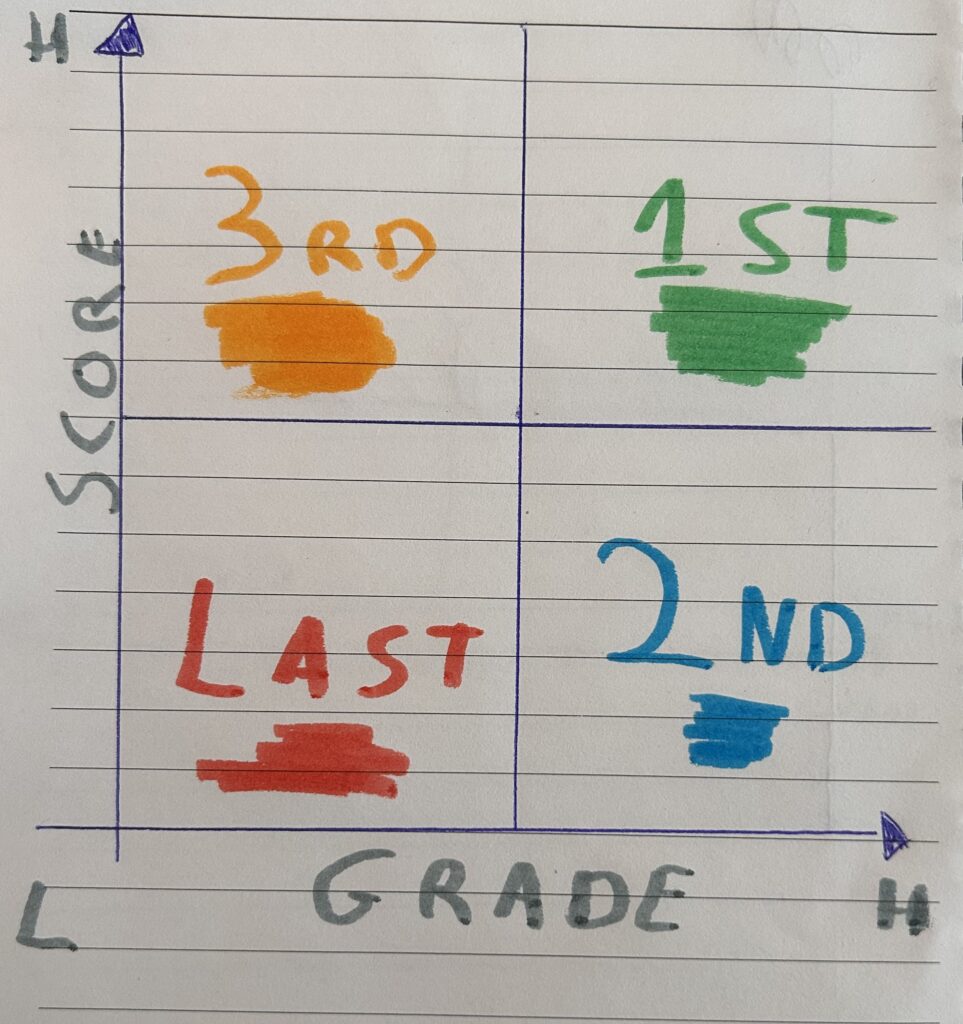 H
3RD
1ST
SCORE
LAST
2ND
GRADE
L
H